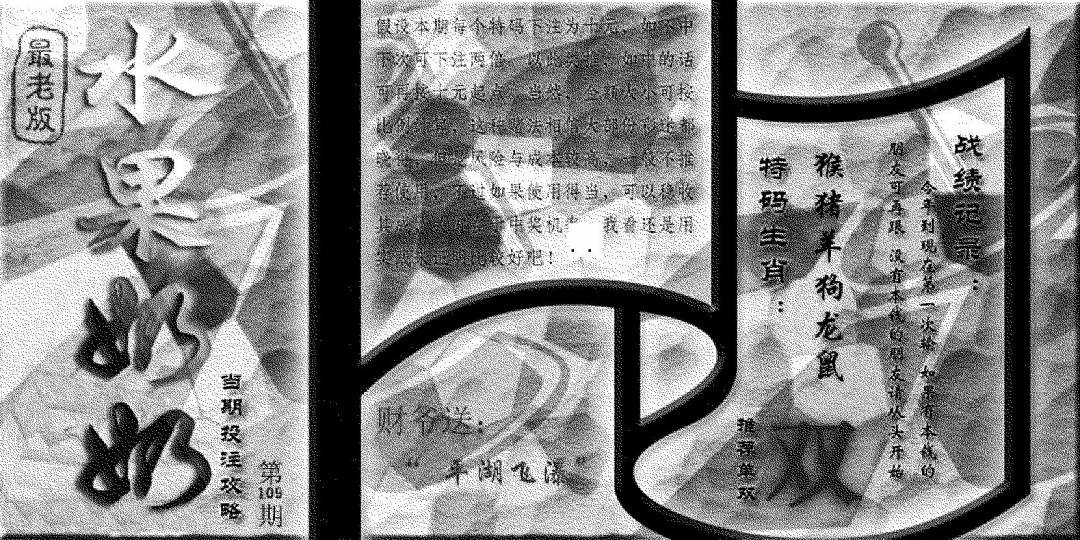 最老版
水果奶奶
当期投注攻略
第109期
假设本期每个特码下注为十元，如不中
下次可下注两倍，以此类推，如中的话
可再按十元起点，当然，金额大小可按
比例
法相信大部份彩迷都
风险与成本较高，
不推
荐使用，不过如果使用得当，可以稳收
中奖机
我看还是用
比较好吧！
财爷送：
“平湖飞瀑”
战绩记录：
今年到现在第一次输 如果有本钱的
朋友可再跟 没有本钱的朋友请从头开始
特码生肖：
猴猪羊狗龙鼠
推荐单双
双